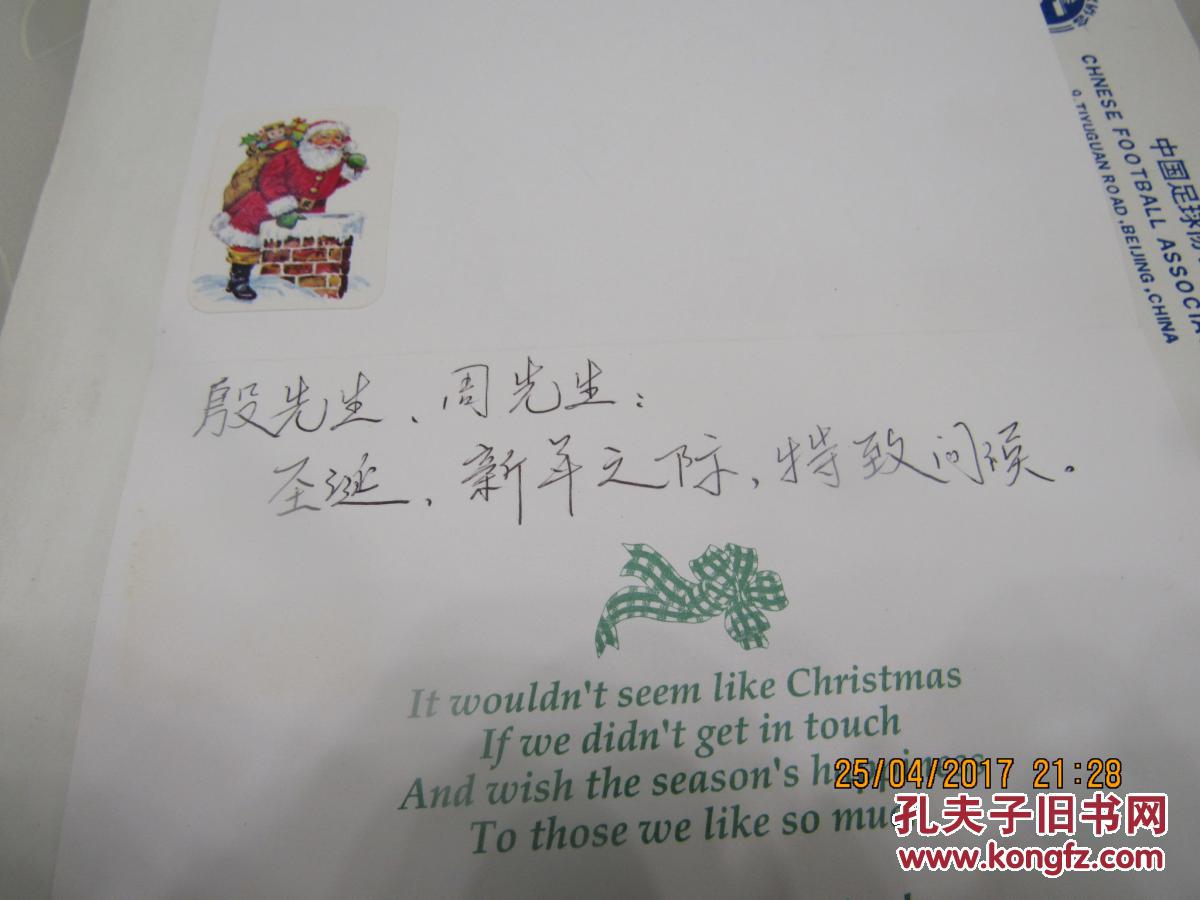 中国足球协
CHINESE FOOTBALL ASSOCIA
9. TIYUGUAN ROAD, BEIJING, CHINA
殷先生、周先生：
圣诞、新年之际，特致问候。
It wouldn't seem like Christmas
If we didn't get in touch
And wish the season's happiness
To those we like so muc
25/04/2017 21:28
孔夫子旧书网
www.kongfz.com